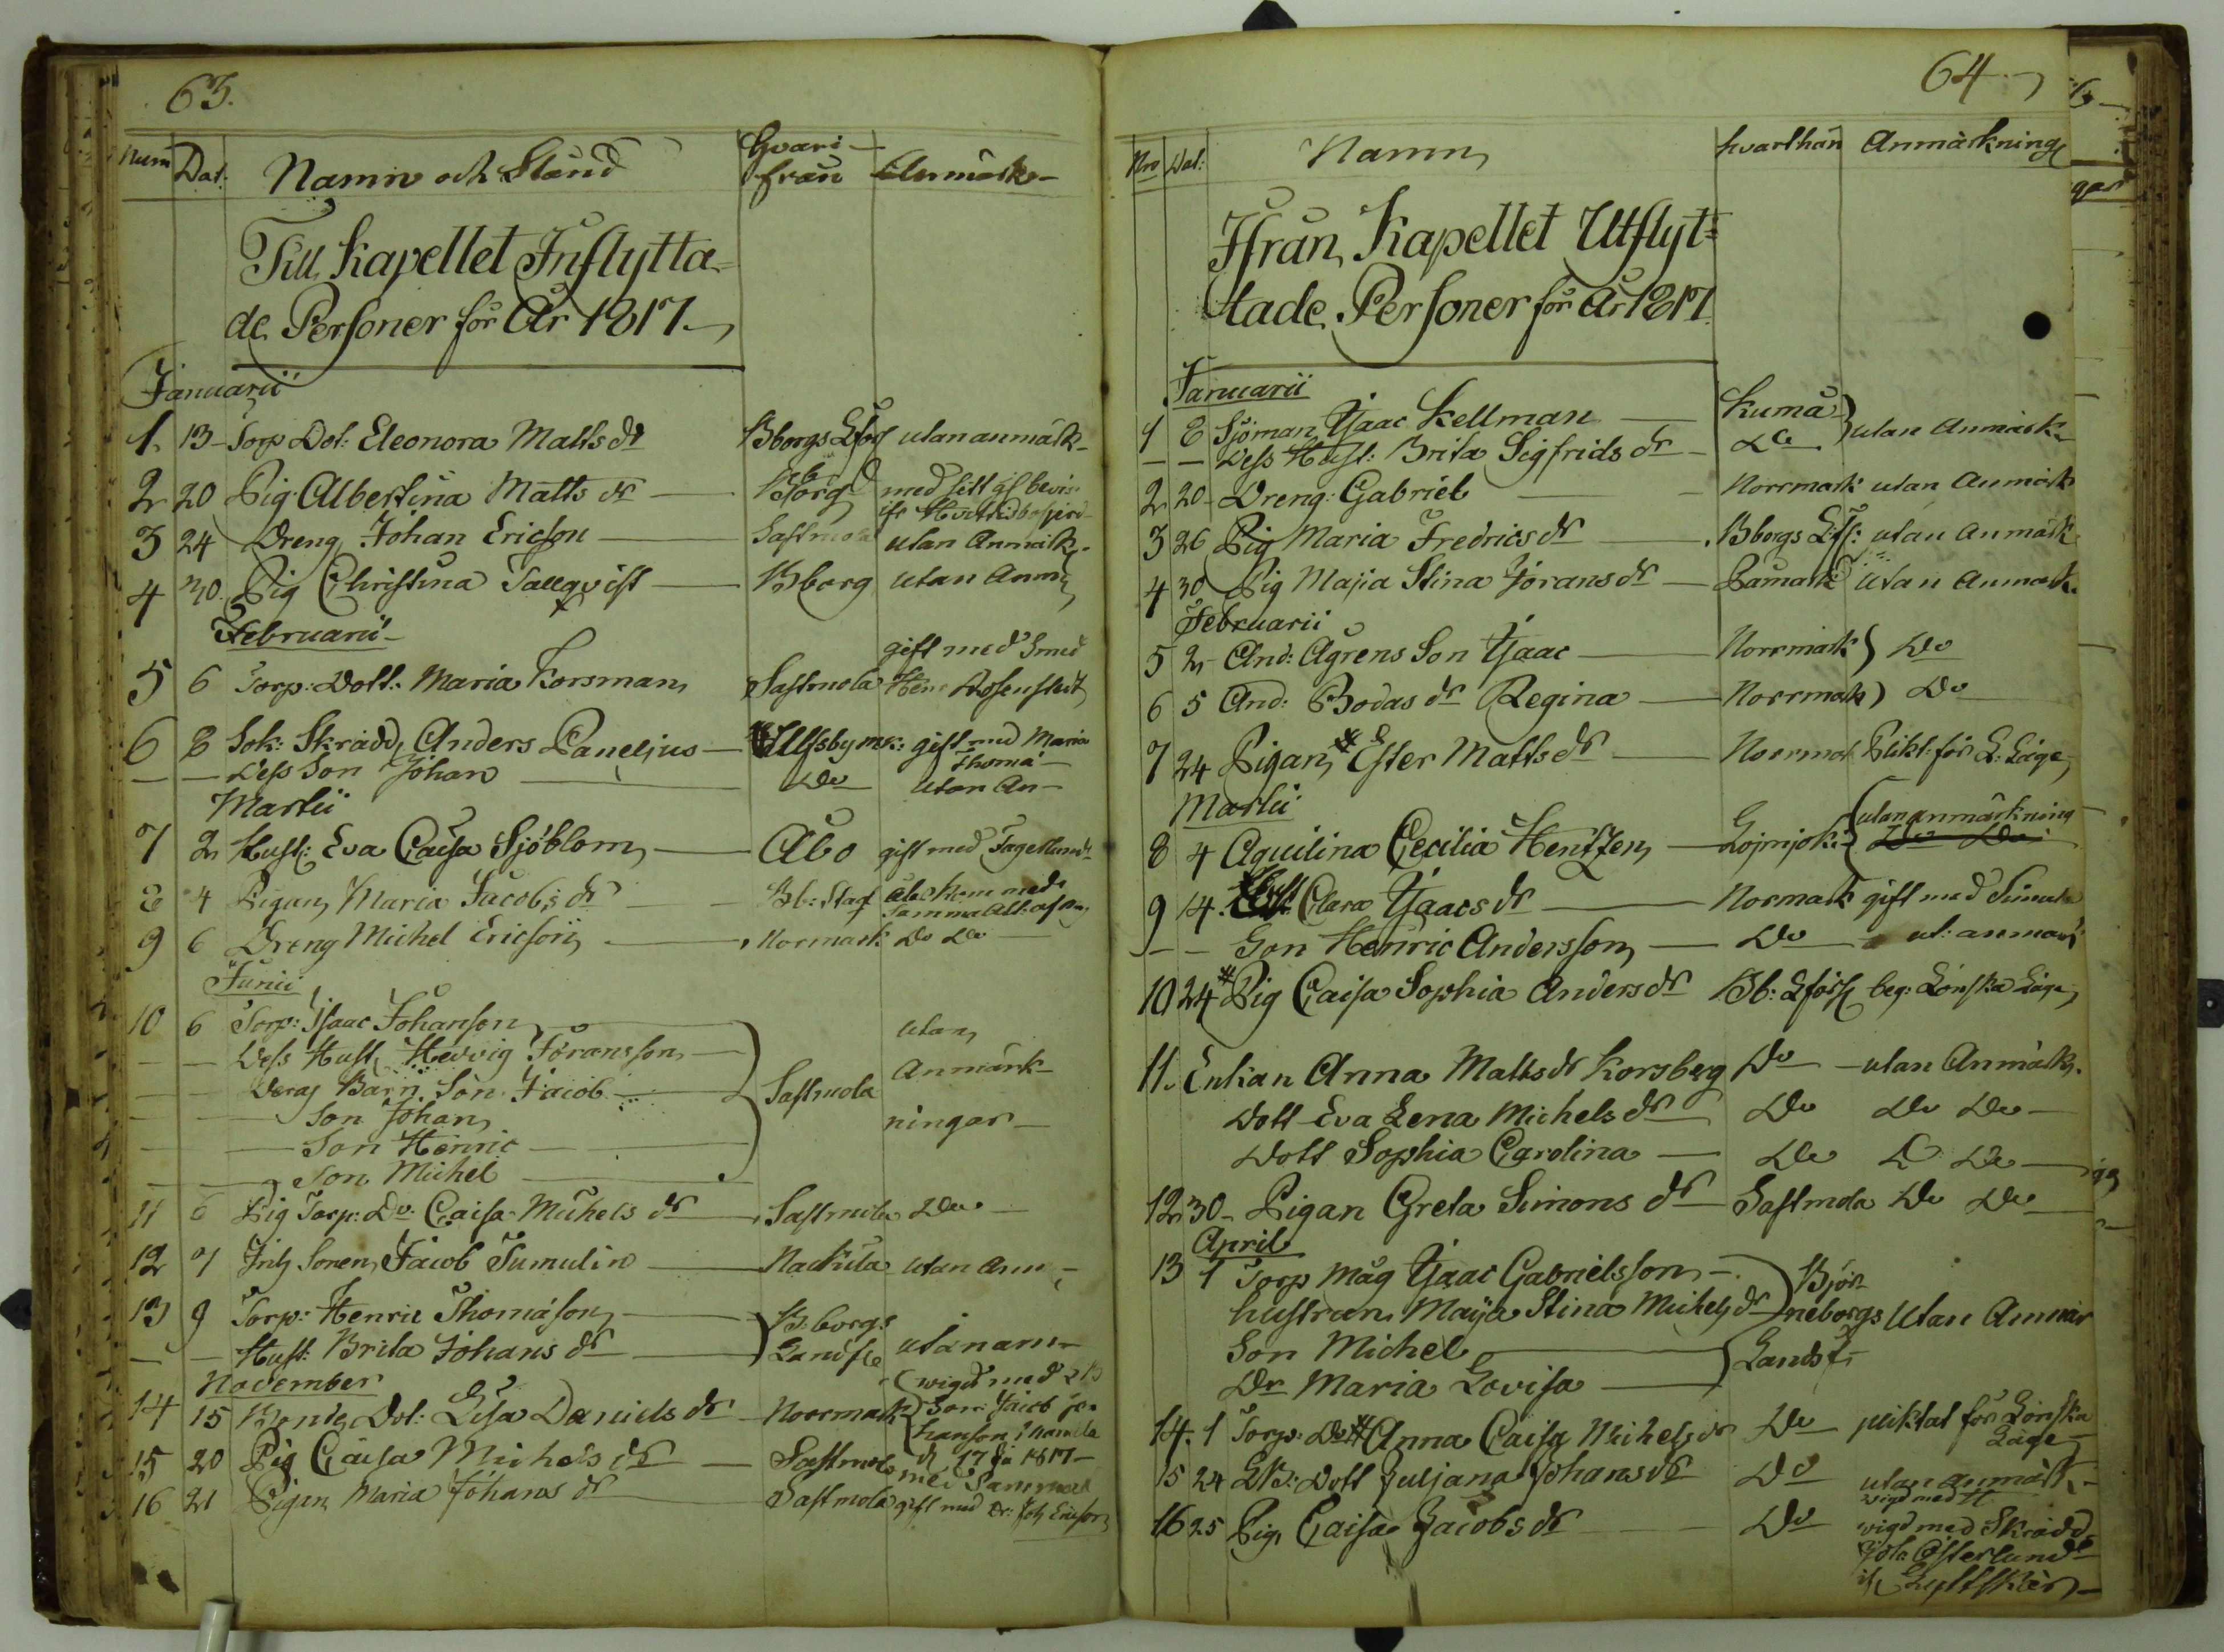 63.
Num Dat: Namn och Stånd Hvari-från Anmärk-
Till Kapellet Inflytta-
de Personer för År 1817.
Januarii
1. 13 Torp Dot: Eleonora Matts dr Bborgs utan anmärk-
2 20 Pig Albertina Matts dr Bborg med sitt
3 24 Dreng Johan Ericson Sastmola utan Anmärk
4 30. Pig Christina Tallqvist Bborg utan Anm
Februarii
5 6 Torp: Dott: Maria Korsman Sastmola gift med Smed
6 8 Sok: Skrädd Anders Paneljus Ulfsby gift med Maria Thoma
— — Dess Son Johan Do utan An-
Martii
7 2 Hust: Eva Caisa Sjöblom Åbo gift med
8 4 Pigan Maria Jacobs dr
9 6 Dreng Michel Ericson Normark Do Do
Junii
10 6 Torp: Isaac Johanson utan
— — Dess Hust Hedvig Joransson Anmärk-
— — Deras Barn Son Jacob Sastmola
Son Johan ningar
— — Son Henric
— — Son Michel
11 6 Pig Torp: Dr Caisa Michels dr Sastmola Do
12 7 Sonen Jacob Tumulin Nackila utan Anm
13 9 Torp: Henric Thomason B:borgs
— — Hust: Brita Johans dr utan anm-
November wigd med
14 15 Bonde Dot: Lisa Daniels dr Norrmark Son Jacob Jo-
hanson
15 20 Pig Caisa Michels dr Sastmola
16 21 Pigan Maria Johans dr Sastmola gift med Dr: Joh Ericson
64.
Nro Dat: Namn hvarthän Anmärkning
Ifrån Kapellet Utflyt=
tade Personer för År 1817
Januarii
1 8 Sjöman Isaac Kellman Kumå
— — Dess Hust: Brita Sigfrids dr Do utan Anmärk
2 20 Dreng: Gabriel Norrmark utan Anmärk
3 26 Pig Maria Fredrics dr Bborgs utan Anmärk
4 30 Pig Majia Stina Jorans dr Påmark utan Anmärk.
Februarii
5 2 And: Ågrens Son Isaac Norrmark Do
6 5 And: Bodas dr Regina Norrmark Do
7 24 Pigan Ester Matts dr Norrmark Plikt: för L: Läge
Martii
8 4 Aquilina Cecilia Hentzen utan anmärkning
Do Do
9 14. Clara Isaacs dr Normark gift med
— — Son Henric Andersson Do ut: anmark
10 24 Pig Caisa Sophia Anders dr Bb: beg: Lönska Läge
11. Enkan Anna Matts dr Korsberg Do utan Anmärk.
Dott Eva Lena Michels dr Do Do Do
Dott Sophia Carolina Do D Do
12 30 Pigan Greta Simons dr Sastmola Do Do
April
13 1 Torp Måg Isaac Gabrielsson Björ-
hustrun Maija Stina Michels dr neborgs Utan Anmär
Son Michel Lands f
Dr Maria Lovisa
14. 1 Torp: Dr Anna Caisa Michels dr Do pliktat för Lönska
Läge
15 24 Dott Juljana Johans dr Do utan anmärk
wigd med
16 25 Pig Caisa Jacobs dr Do wigd med Skrädd
Österlund